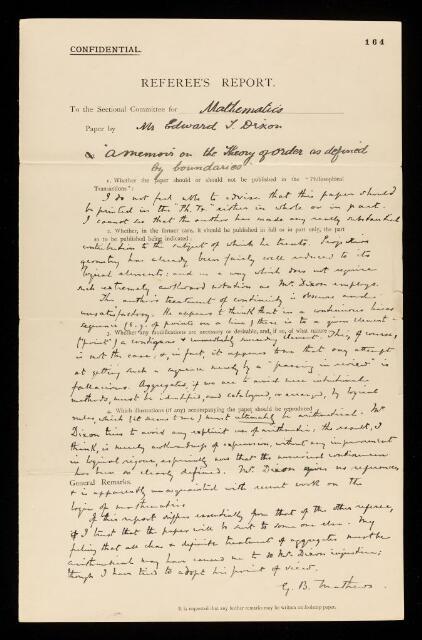 164
CONFIDENTIAL.
REFEREE'S REPORT.
To the Sectional Committee for Mathematics
Paper by Mr Edward T. Dixon
"a memoir on the Theory of Order as defined
by boundaries"
1. Whether the paper should or should not be published in the "Philosophical
Transactions":
I do not feel able to advise that this paper should
be printed in the Ph. Tr. either in whole or in part.
I cannot see that the author has made any really substantial
2. Whether, in the former case, it should be published in full or in part only, the part
as to be published being indicated:
contribution to the subject of which he treats. Projective
geometry has already been fairly well reduced to its
logical elements: and in a way which does not require
such extremely awkward notation as Mr. Dixon employs.
The author's treatment of continuity is obscure and
unsatisfactory. He appears to think that in a continuous linear
sequence (e.g. of points on a line) there is to a given element
3. Whether any modifications are necessary or desirable, and, if so, of what nature:
("point") a contiguous & immediately succeeding element. This, of course,
is not the case; &, in fact, it appears to me that any attempt
at getting such a sequence merely by a "passing in review" is
fallacious. Aggregates, if we are to avoid mere intuitional
methods, must be identified, and catalogued, or arranged, by logical
4. Which illustrations (if any) accompanying the paper should be reproduced:
rules, which (it seems to me) must ultimately be arithmetical. Mr
Dixon tries to avoid any explicit use of arithmetic: the result, I
think, is merely awkwardness of expression, without any improvement
in logical rigour, especially now that the numerical continuum
has been so clearly defined. Mr. Dixon gives no references,
General Remarks.
& is apparently unacquainted with recent work on the
logic of mathematics.
If this report differs essentially from that of the other referee,
I trust that the paper will be sent to some one else. My
feeling that all clear & definite treatment of aggregates must be
arithmetical may have caused me to do Mr. Dixon injustice;
though I have tried to adopt his point of view.
G. B. Mathews.
It is requested that any further remarks may be written on foolscap paper.